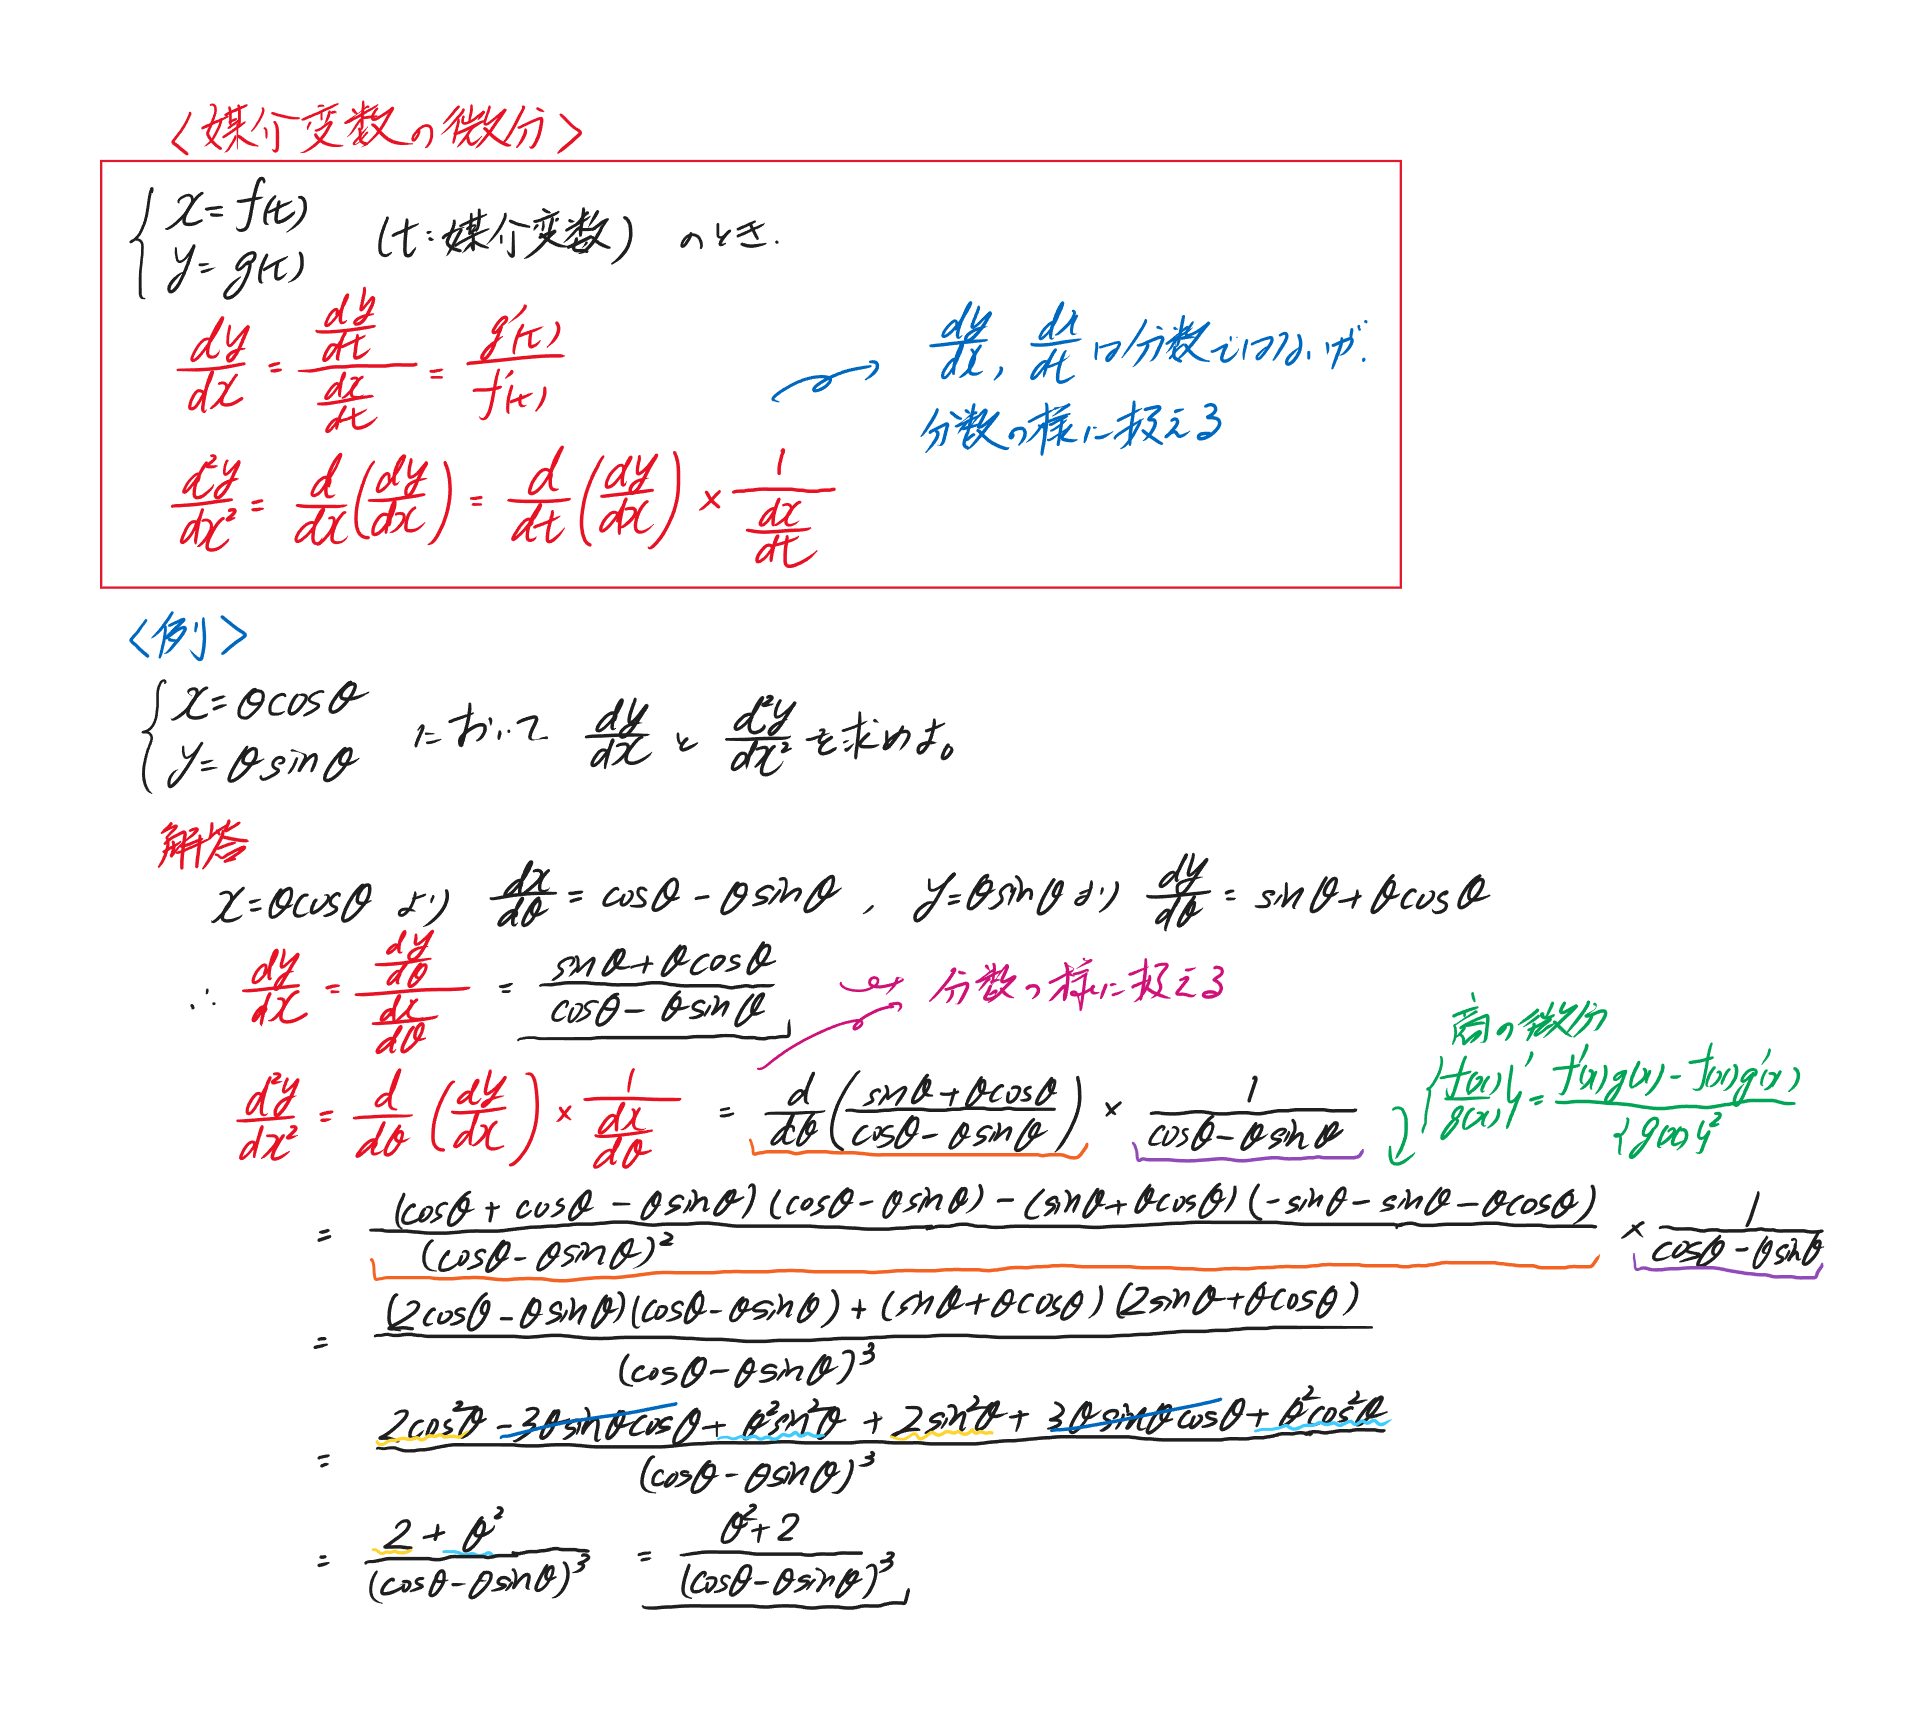 <媒介変数の微分>
{ x = f(t)
{ y = g(t)
(t:媒介変数) のとき.
dy/dx = (dy/dt)/(dx/dt) = g'(t)/f'(t)
dy/dx, dx/dt は分数ではないが.
分数の様に扱える
d²y/dx² = d/dx (dy/dx) = d/dt (dy/dx) × 1/(dx/dt)
<例>
{ x = θcosθ
{ y = θsinθ
において dy/dx と d²y/dx² を求めよ。
解答
x = θcosθ より dx/dθ = cosθ - θsinθ , y = θsinθ より dy/dθ = sinθ + θcosθ
∴ dy/dx = (dy/dθ)/(dx/dθ) = (sinθ + θcosθ)/(cosθ - θsinθ)
分数の様に扱える
商の微分
{f(x)/g(x)}' = (f'(x)g(x) - f(x)g'(x))/{g(x)}²
d²y/dx² = d/dθ (dy/dx) × 1/(dx/dθ) = d/dθ ((sinθ + θcosθ)/(cosθ - θsinθ)) × 1/(cosθ - θsinθ)
= ((cosθ + cosθ - θsinθ)(cosθ - θsinθ) - (sinθ + θcosθ)(-sinθ - sinθ - θcosθ))/(cosθ - θsinθ)² × 1/(cosθ - θsinθ)
= ((2cosθ - θsinθ)(cosθ - θsinθ) + (sinθ + θcosθ)(2sinθ + θcosθ))/(cosθ - θsinθ)³
= (2cos²θ - 3θsinθcosθ + θ²sin²θ + 2sin²θ + 3θsinθcosθ + θ²cos²θ)/(cosθ - θsinθ)³
= (2 + θ²)/(cosθ - θsinθ)³ = (θ² + 2)/(cosθ - θsinθ)³